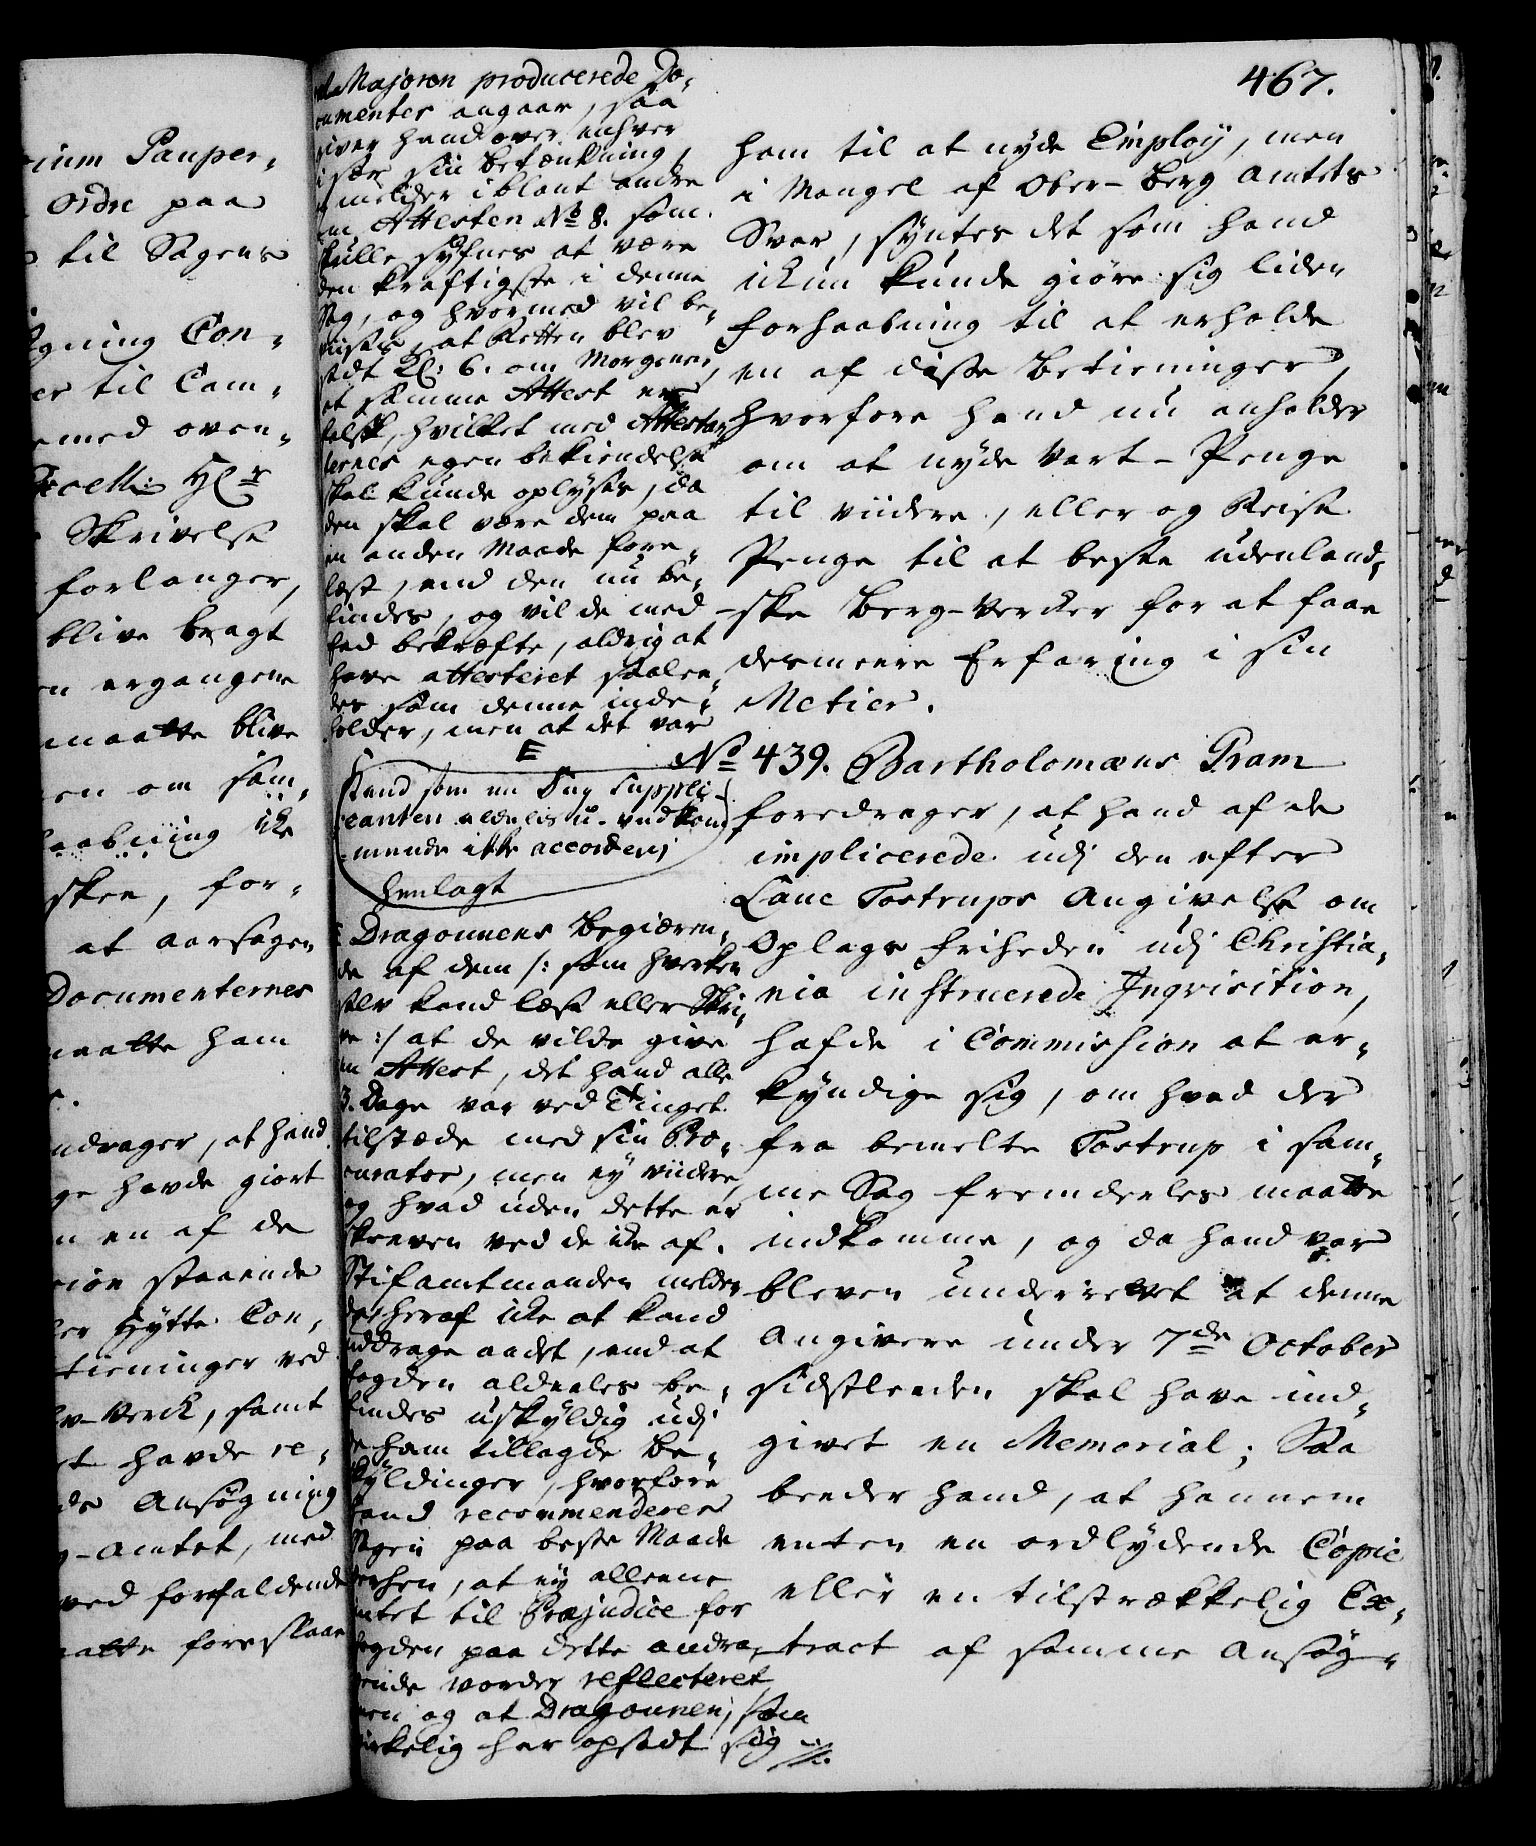 467.
inm Pauper-
Ordre paa
til Sagens
gning Con-
er til Cam-
med oven-
Skrivelse
forlanger,
blive bragt
en ergangene
maatte blive
en om sam-
aabning ike
skee, for-
at aarsagen
Documenternes
maatte ham
ndrager, at hand
ge havde giort
n en af de
ion staaende
ler Hytte Con-
tieninger ved
Verck, samt
et havde re-
de Ansøgning
g-Amtet, med
ved forfaldende
maatte foreslaae
Majoren producerede Do-
cumenter angaar, saa
giver hand over enhver
især sin betænkning,
melder iblant andre
om Attesten No 8. som
skulle synes at være
den kraftigste i denne
Sag, og hvormed vil be-
viises, at Retten blev
sadt Kl: 6. om Morgenen,
at samme Attest er
falsk, hvilket med Attestan-
ternes egen bekiendelse
skal kunde oplyses, da
den skal være dem paa
en anden Maade fore-
læst, end den nu be-
findes, og vil de med
Eed bekræfte, aldrig at
have attesteret saale-
des som denne inde-
holder, men at det var
E
Kand som en Sag Suppli-
canten aldeles u-vedkom-
mende ikke accorderes
henlagt
E Dragonnens begiæren-
de af dem /: som hverken
selv kand læse eller Skri-
ve :/ at de vilde give
en Attest, det hand alle
3. Dage var ved Tinget
tilstæde med sin Pro-
curator, men ey viidere,
og hvad uden dette er
skreven ved de ike af.
Stiftamtmanden melder
des heraf ike at kand
uddrage andet, end at
Fogden aldeeles be-
findes uskyldig udj
de ham tillagde be-
skyldinger, hvorfore
hand recommenderer
Sagen paa beste Maade
derhen, at ey alleene
intet til Præjudice for
Fogden paa dette andra-
gende vorder reflecteret
men og at Dragonnen, som
virkelig har opsadt sig ://:
ham til at nyde Employ, men
i Mangel af Ober-Berg Amtets
Svar, syntes det som hand
ickun kunde giøre sig liden
forhaabning til at erholde
en af disse betieninger,
hvorfore hand nu anholder
om at nyde Vart-Penge
til viidere, eller og Reise
Penge til at besee udenland-
-ske Berg-Vercker for at faae
desmeere Erfaring i sin
Metier.
No 439. Bartholomæus Pram
foredrager, at hand af de
implicerede udj den efter
Lauc Tostrups Angivelse om
Oplags friheden udj Christia-
nia instruerede Inqvisition,
hafde i Commission at er-
kyndige sig, om hvad der
fra bemelte Tostrup i sam-
me Sag fremdeeles maatte
indkomme, og da hand var
bleven underrettet at denne
Angivere under 7de October
sidstleeden skal have ind-
givet en Memorial; Saa
beeder hand, at hannem
enten en ordlydende Copie
eller en tilstrækkelig Ex-
tract af samme Ansøg-